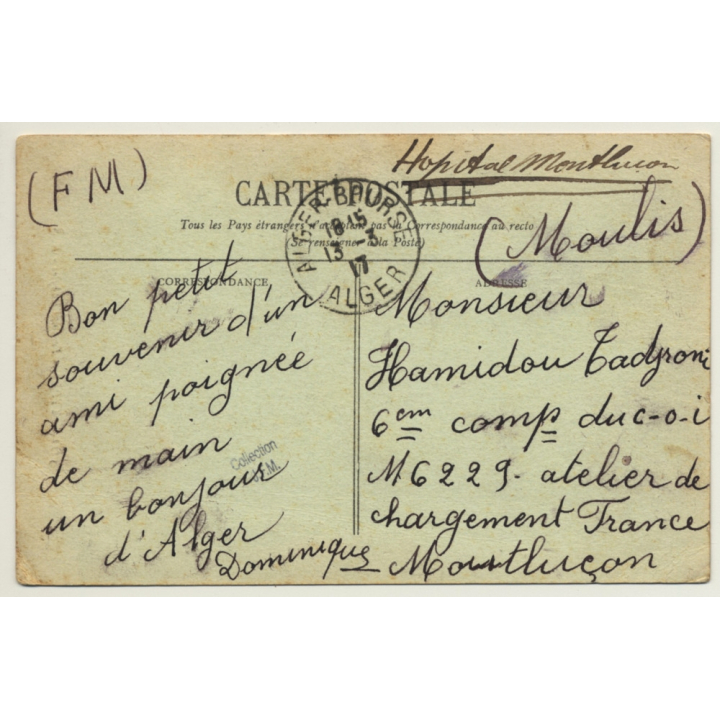 (FM)
Hopital Montluçon
CARTE POSTALE
Tous les Pays étrangers n'acceptent pas la Correspondance au recto
(Se renseigner à la Poste)
ALGER-BOURSE
18 15
13 -3
17
ALGER
(Moulis)
CORRESPONDANCE
Bon petit
souvenir d'un
ami poignée
de main
un bonjour
d'Alger
Dominique
Collection
ADRESSE
Monsieur
Hamidou Tadjroni
6em comp du c-o-i
M 6229- atelier de
chargement France
Montluçon